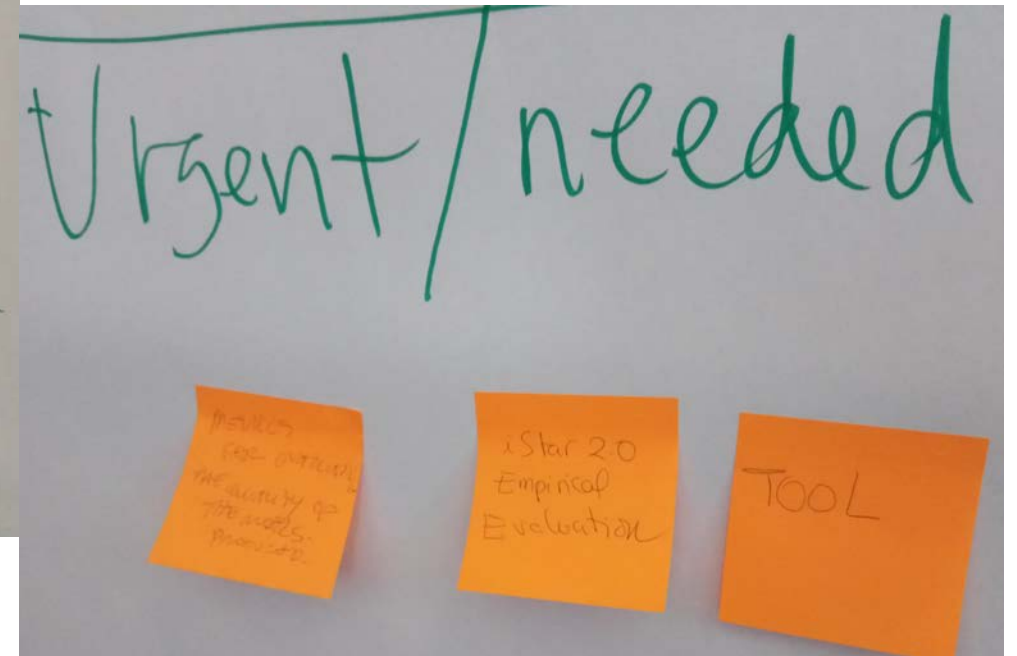 Urgent/needed
METRICS
FOR
THE QUALITY OF
THE MODELS
PRODUCED.
iStar 2.0
Empirical
Evaluation
TOOL